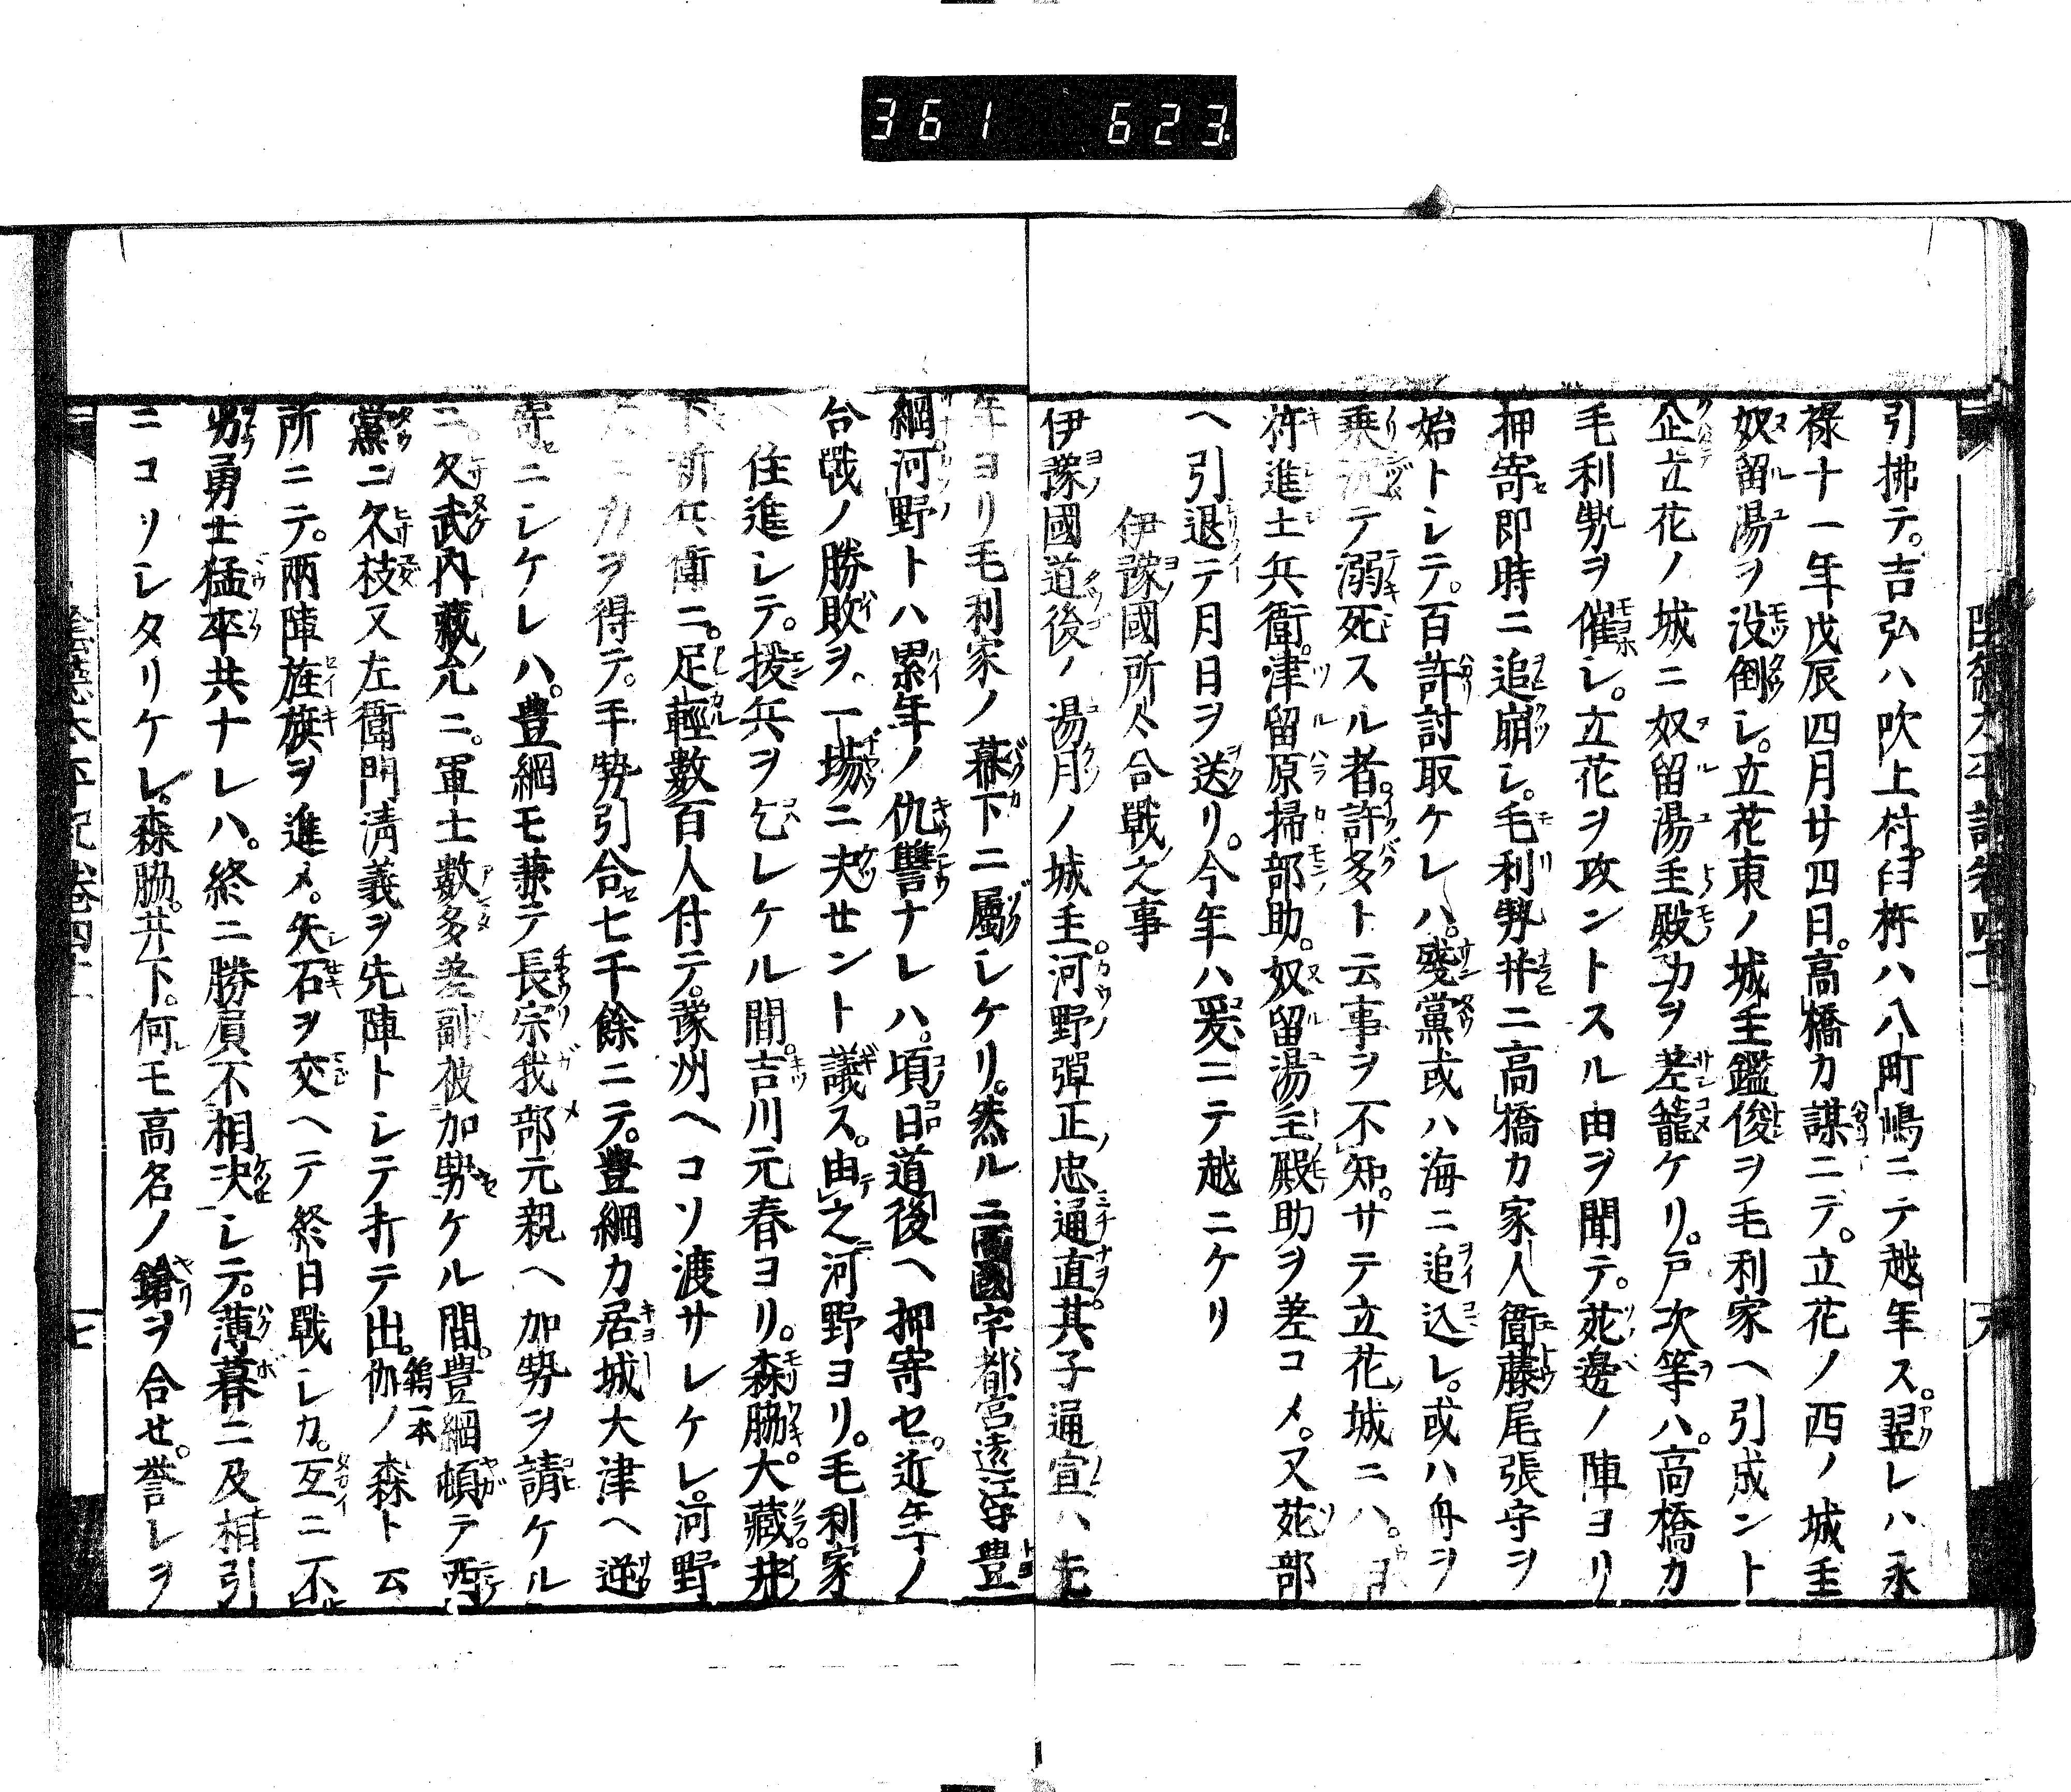 361 623
引拂テ。吉弘ハ吹上村。臼杵ハ八町嶋ニテ越年ス。翌レハ永
禄十一年戊辰四月廿四日。高橋カ謀ニテ。立花ノ西ノ城主
奴留湯ヲ没倒シ。立花東ノ城主鑑俊ヲ毛利家ヘ引成ント
企立花ノ城ニ奴留湯主殿カヲ差籠ケリ。戸次等ハ。高橋カ
毛利勢ヲ催シ。立花ヲ攻ントスル由ヲ聞テ。苑邊ノ陣ヨリ
押寄即時ニ追崩シ。毛利勢并ニ高橋カ家人衞藤尾張守ヲ
始トシテ。百許討取ケレハ。殘黨或ハ海ニ追込レ。或ハ舟ヲ
乗沉テ溺死スル者。許多ト云事ヲ不知。サテ立花ノ城ニハ。
杵進士兵衞。津留原掃部助。奴留湯主殿助ヲ差コメ。又苑部
ヘ引退テ月日ヲ送リ。今年ハ爰ニテ越ニケリ
伊豫國所々合戰之事
伊豫國道後ノ湯月ノ城主。河野彈正ノ忠通直。其子通宣ハ先
年ヨリ毛利家ノ幕下ニ屬シケリ。然ルニ西國宇都宮遠江守豊
綱河野トハ累年ノ仇讐ナレハ。頃日道後ヘ押寄セ。近年ノ
合戰ノ勝敗ヲ、一場ニ决セント議ス。由之河野ヨリ。毛利家
ヘ住進シテ。援兵ヲ乞シケル間。吉川元春ヨリ。森脇大藏。井
下新兵衞ニ。足輕數百人付テ。豫州ヘコソ渡サレケレ。河野
大ニカヲ得テ。手勢引合セ七千餘ニテ。豊綱カ居城大津ヘ逆
寄セニシケレハ。豊綱モ兼テ長宗我部元親ヘ加勢ヲ請ケル
ニ。久武内藏允ニ。軍士數多差副被加勢ケル間。豊綱頓テ西
黨ニ久枝又左衞門清義ヲ先陣トシテ打テ出。伽ノ森ト云
鶴一本
所ニテ。兩陣旌旗ヲ進メ。矢石ヲ交ヘテ終日戰シカ。互ニ不
劣勇士猛卒共ナレハ。終ニ勝負不相决シテ。薄暮ニ及相引
ニコソシタリケレ。森脇。井下。何レモ高名ノ鎗ヲ合せ。誉レヲ
七